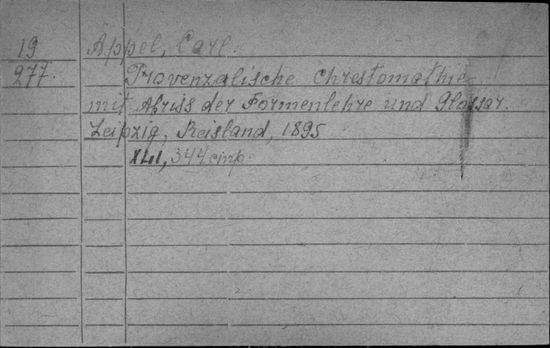 19 Appel, Carl.
277. Provenzalische Chrestomathie
mit Abriss der Formenlehre und Glossar.
Leipzig, Reisland, 1895
XLI, 344 стр.